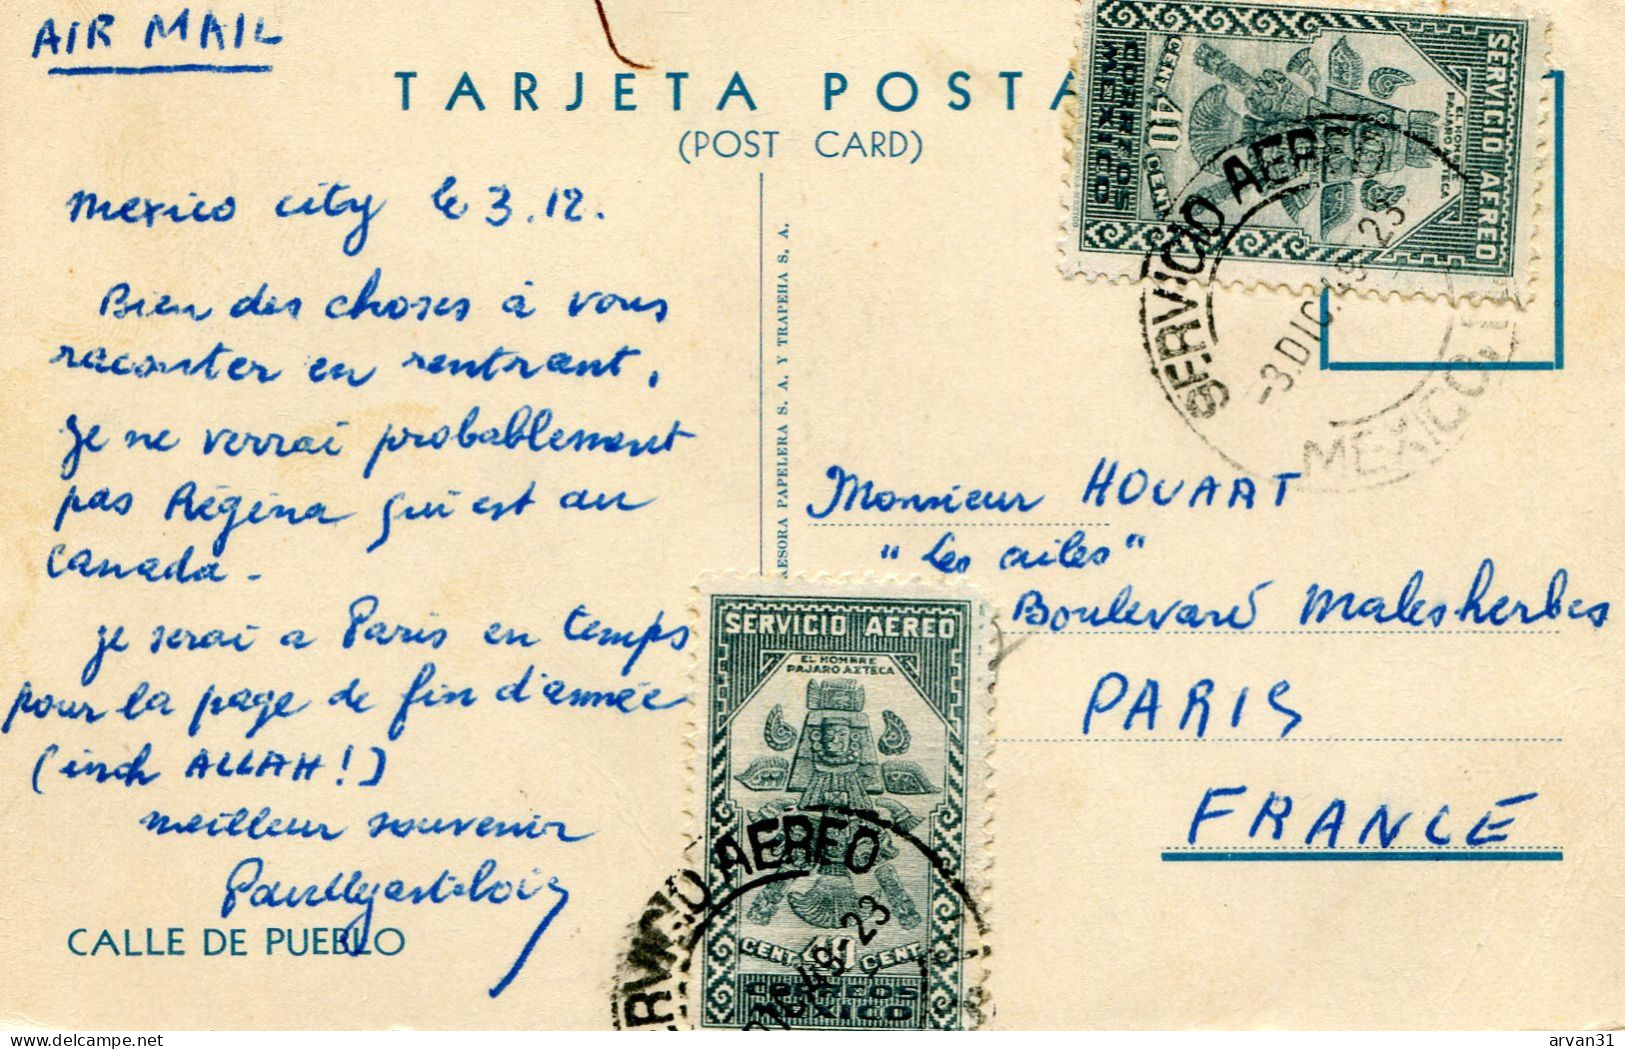 AIR MAIL
TARJETA POSTA
(POST CARD)
Mexico city le 3.12.
Bien des choses à vous
raconter en rentrant.
Je ne verrai probablement
pas Régina qui est au
Canada.
Je serai a Paris en temps
pour la page de fin d'année
(inch ALLAH!)
meilleur souvenir
CALLE DE PUEBLO
AESORA PAPELERA S. A. Y TRAPEHA S. A.
SERVICIO AEREO
EL HOMBRE
PAJARO AZTECA
40 CENT
CORREOS
MEXICO
SERVICIO AEREO
-3.DIC.49-23
MEXICO
Monsieur HOUART
"Les ailes"
Boulevard Malesherbes
PARIS
FRANCE
SERVICIO AEREO
EL HOMBRE
PAJARO AZTECA
CENT 40 CENT
CORREOS
MEXICO
SERVICIO AEREO
DIC.49-23
delcampe.net
arvan31